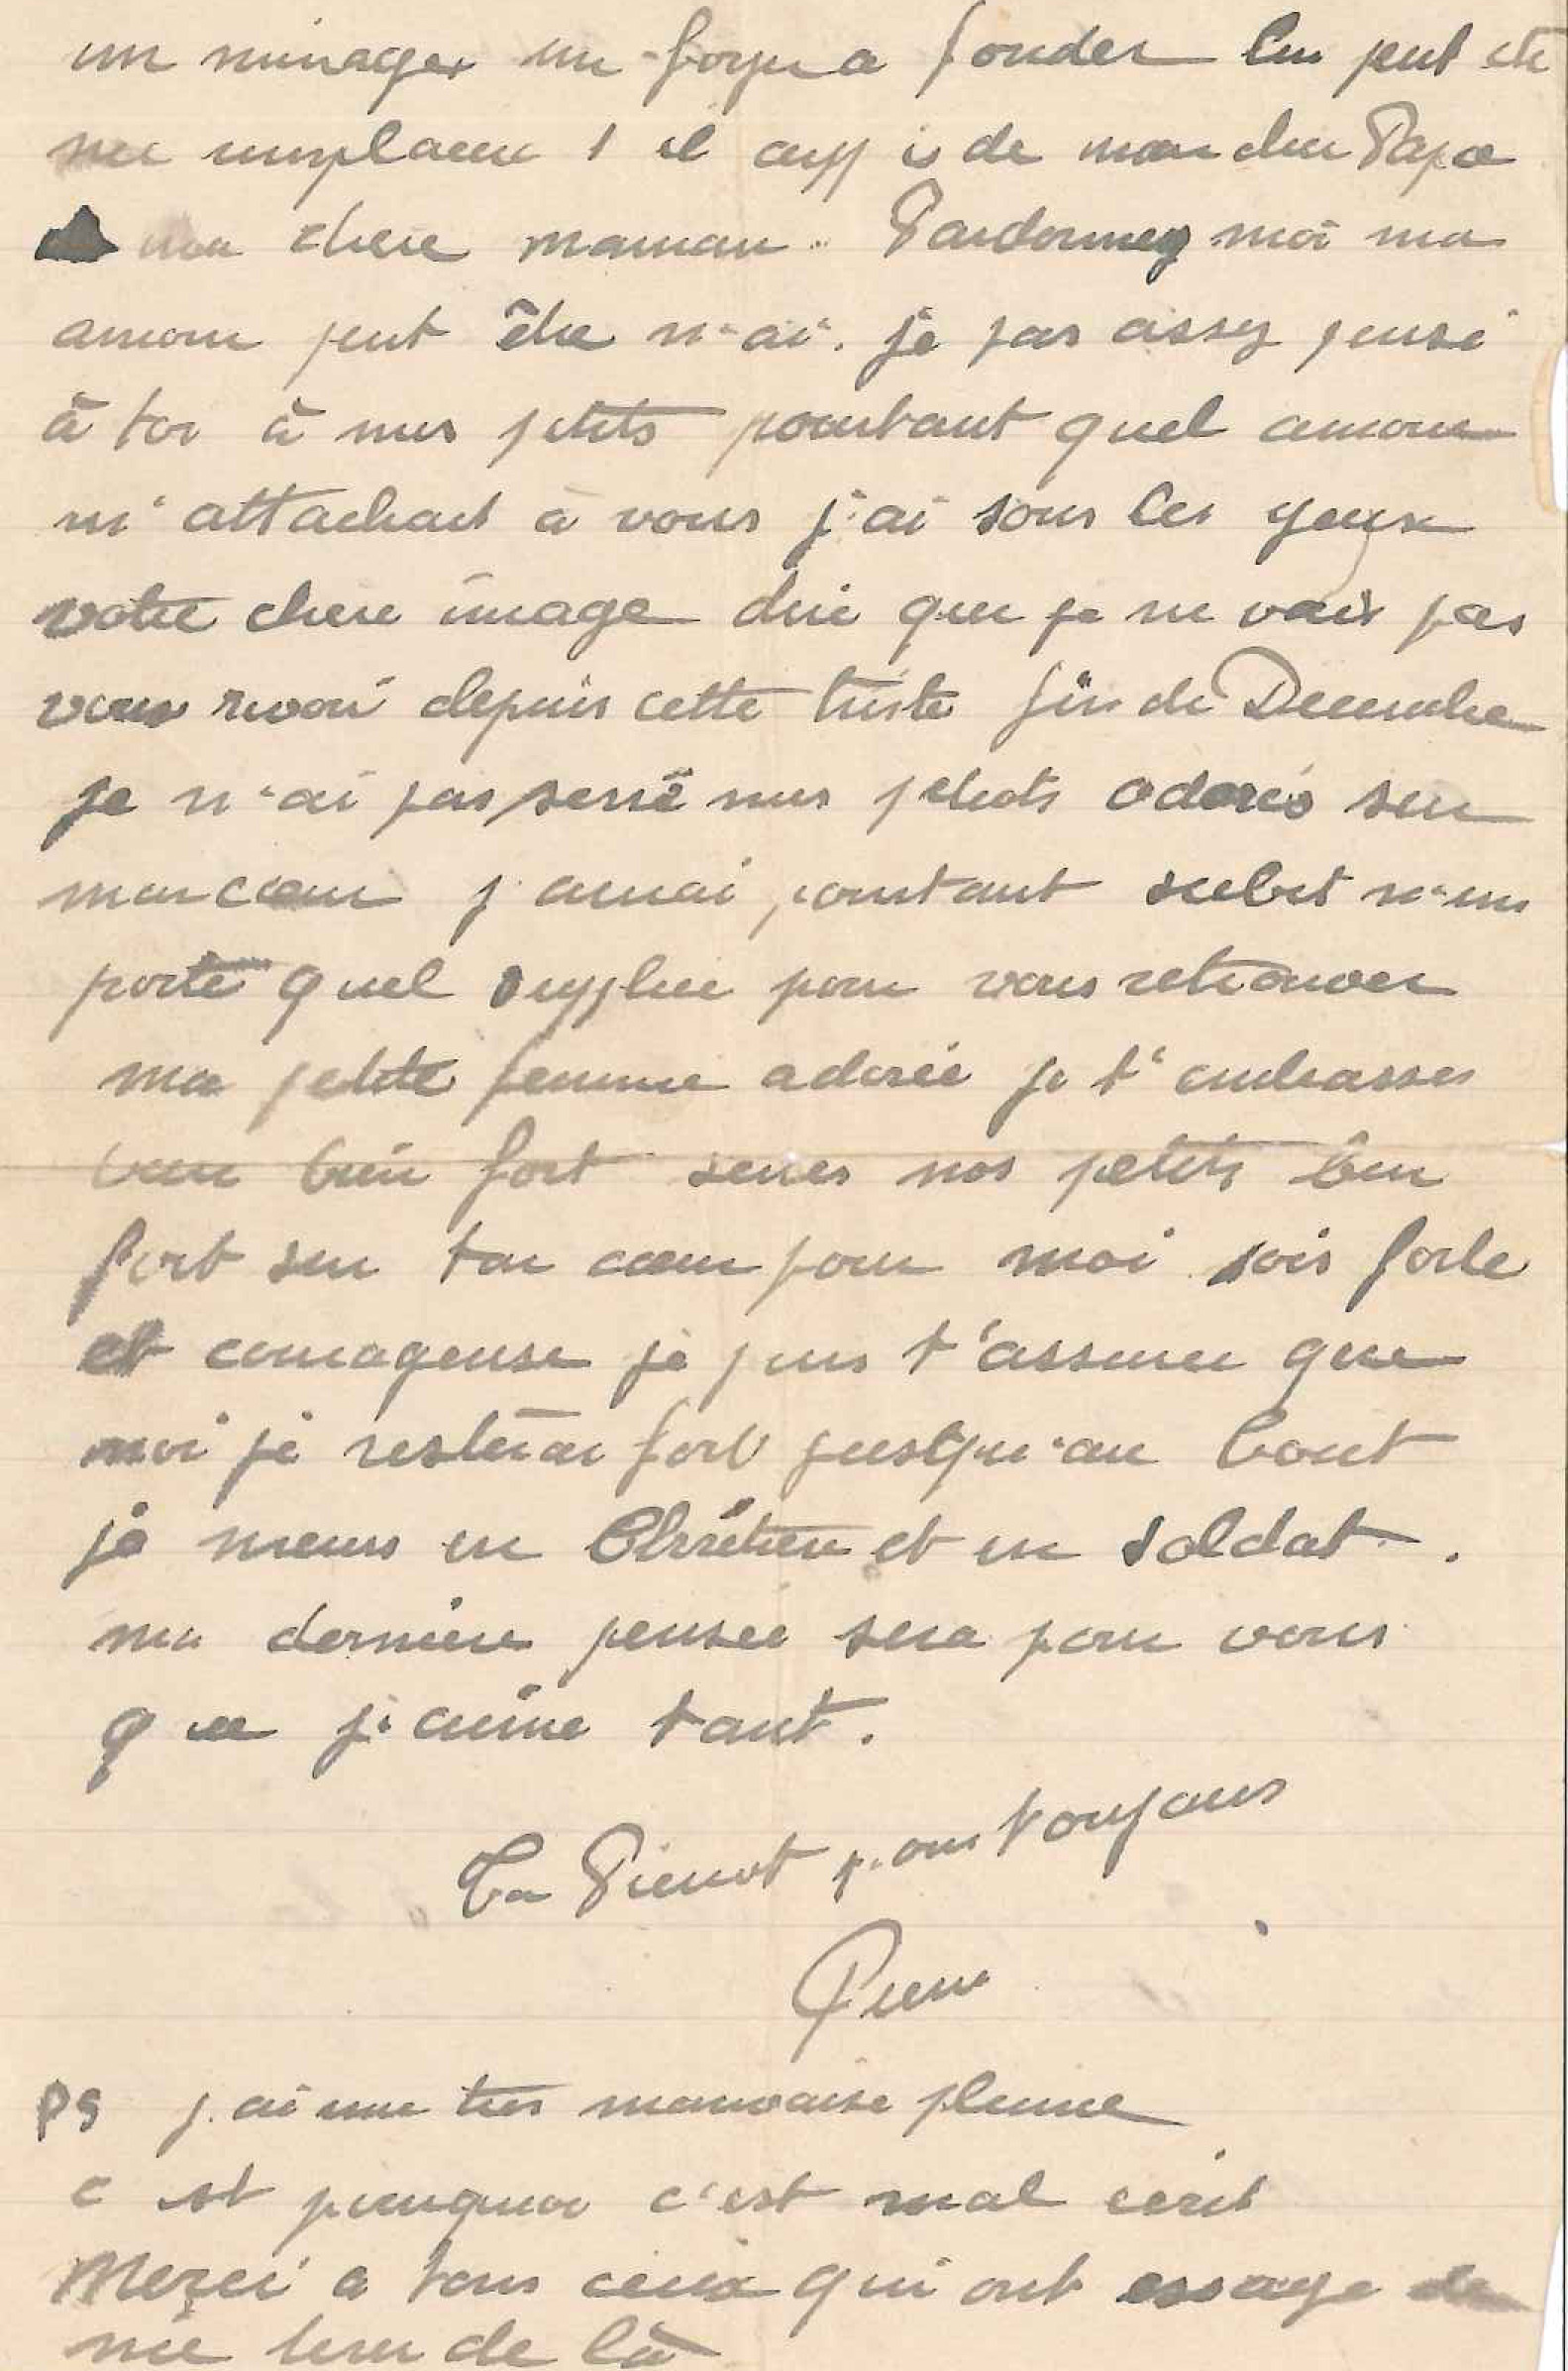 un ménager un foyer a fonder lui peut etre
me remplacer s il auss is de mon cher Papa
ma chere maman. Pardonnez moi ma
amour peut être n'ai je pas assez pensé
à toi à mes petits pourtant quel amour
m'attachait à vous j'ai sous les yeux
votre chere image dire que je ne vais pas
vous revoir depuis cette triste fin de Decembre
je n'ai pas serré mes petiots adorés sur
mon cœur j aurai pourtant subit n'im
porte quel supplice pour vous retrouver
ma petite femme adorée je t'embrasses
bien bien fort serres nos petits bien
fort sur ton cœur pour moi sois forte
et courageuse je puis t'assurer que
moi je resterai fort jusqu'au bout
je meurs en Chrétien et en soldat.
ma derniere pensée sera pour vous
que j'aime tant.
Ton Pierrot pour toujours
Pierre
PS j.ai une tres mauvaise plume
c est pourquoi c'est mal ecrit
Merci a tous ceux qui ont essaye de
me tirer de là